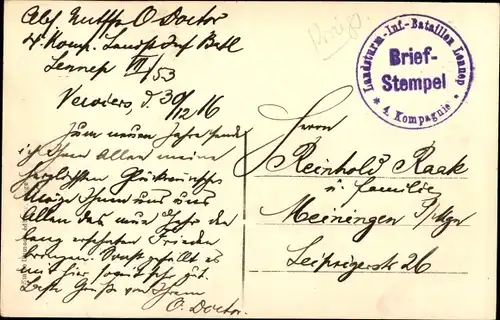 O. Doctor
4. Komp. Landst. Inf. Batl.
Lennep VII/53
Verviers, d. 30/12 16
Zum neuen Jahre sende
ich Ihnen Allen meine
herzlichsten Glückwünsche
Möge Ihnen uns uns
Allen das neue Jahr den
lang ersehnten Frieden
bringen. Sonst gefällt es
mir hier soweit gut.
Beste Grüße von Ihrem
O. Doctor.
Landsturm-Inf.-Bataillon Lennep
Brief-
Stempel
* 4. Kompagnie *
Herrn
Reinhold Raak
u. Familie
Meiningen
Leipzigerstr 26